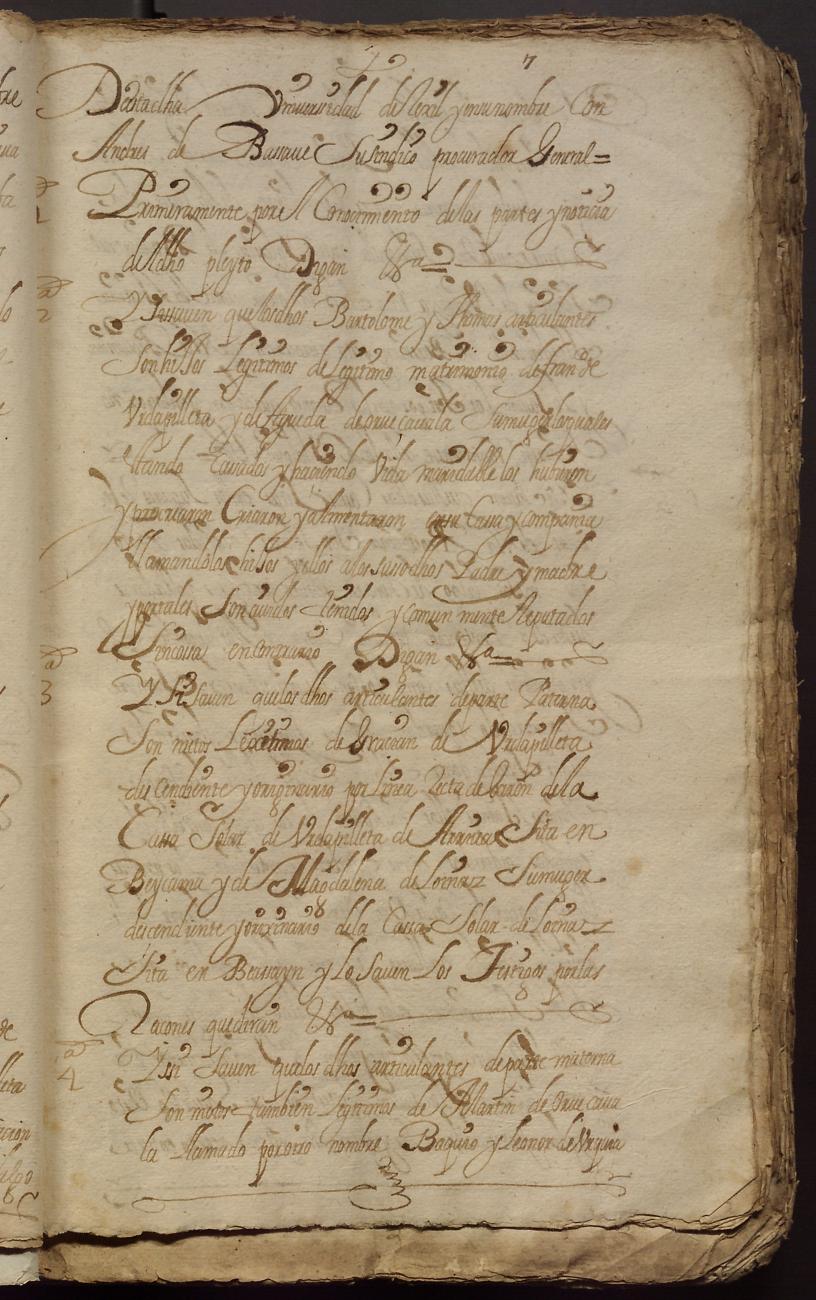 7
De estadha Universidad de Lexil y en su nombre Con
Andres de Bassave Su sindico procurador General =
1
Primeramente por el Conocimiento de llas partes y noticia
dell dho pleyto Digan &a
2
Y Si saven que llos dhos Bartolome y Thomas articulantes
Son hijos Legitimos de legitimo matrimonio de franco de
Vrdapilleta y de Agueda de oruecavala Su muger los quales
estando Cassados y haciendo Vida maridable los hubieron
y procrearon Criaron y alimentaron en su Cassa y compania
llamandolos hijos y ellos a los susodhos Padre y madre
y por tales Son avidos tenidos y comun mente Reputados
Sin cossa en contrario Digan &a
3
Y Si saven que los dhos articulantes de parte Paterna
Son nietos Legitimos de Gracian de Vrdapilleta
descendiente y originario por linea Recta de baron de la
Cassa Solar de Vrdapilleta de Arriba Sita en
Beyçama y de Magdalena de Loinaz Su muger
descendiente y originario de la Cassa Solar de Loinaz
Sita en Beassayn y Lo Saven Los Testigos por las
Raçones que diran &a
4
Y si Saven que los dhos articulantes de parte materna
Son nietos tambien legitimos de Martin de Oruecava
la llamado por otro nombre Baquio y Leonor de Vrquia